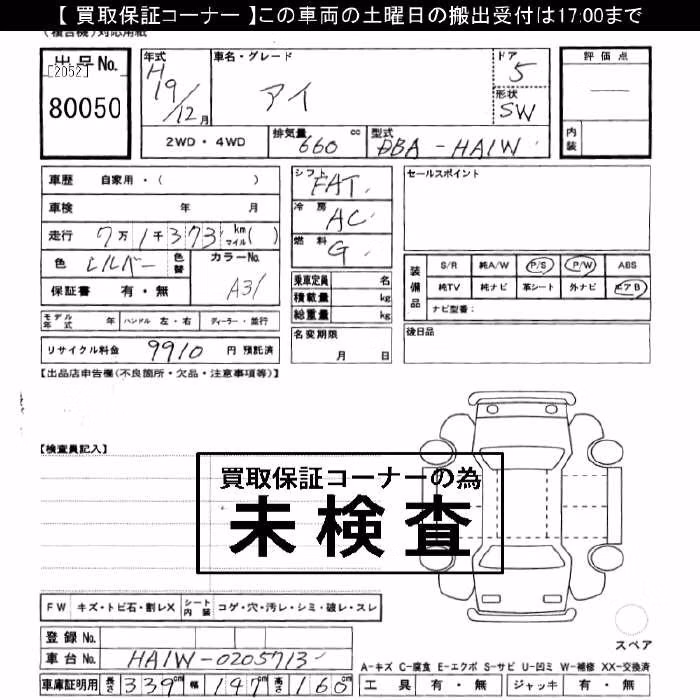 【 買取保証コーナー 】この車両の土曜日の搬出受付は17:00まで
出品No.
[2052]
80050
年式 H 19/12月
車名・グレード アイ
ドア 5
形状 SW
評価点 —
内装
2WD・4WD
排気量 660 cc
型式 DBA-HA1W
車歴 自家用・( )
車検 年 月
走行 7万1千373 km マイル( )
色 シルバー 色替 カラーNo. A31
保証書 有・無
シフト FAT
冷房 AC
燃料 G
乗車定員 名
積載量 kg
総重量 kg
セールスポイント
装備品
S/R 純A/W P/S P/W ABS
純TV 純ナビ 革シート 外ナビ エアB
ナビ型番:
モデル年式 年 ハンドル 左・右 ディーラー・並行
リサイクル料金 9910 円 預託済
名変期限 月 日
後日品
【出品店申告欄(不良箇所・欠品・注意事項等)】
【検査員記入】
買取保証コーナーの為
未検査
FW キズ・トビ石・割レX シート内装 コゲ・穴・汚レ・シミ・破レ・スレ
登録No.
車台No. HA1W-0205713
車庫証明用 長さ 339cm 幅 147cm 高さ 160cm
スペア
A-キズ C-腐食 E-エクボ S-サビ U-凹ミ W-補修 XX-交換済
工具 有・無 ジャッキ 有・無